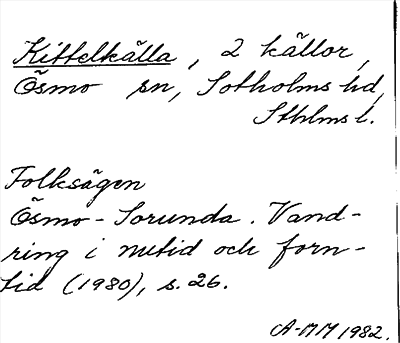 Kittelkälla, 2 källor,
Ösmo sn, Sotholms hd,
Sthlms l.
Folksägen
Ösmo-Sorunda. Vand-
ring i nutid och forn-
tid (1980), s. 26.
A-MM 1982.